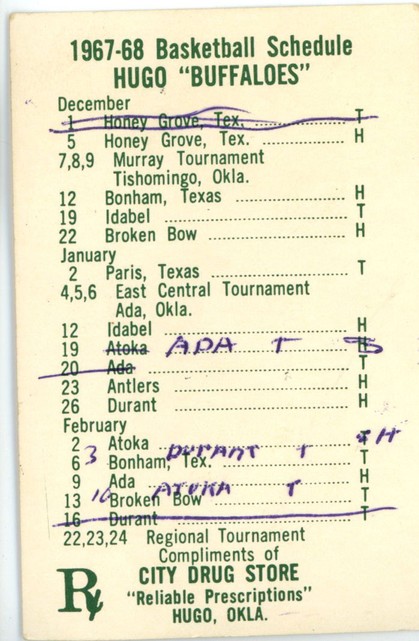 1967-68 Basketball Schedule
HUGO "BUFFALOES"
December
1 Honey Grove, Tex. T
5 Honey Grove, Tex. H
7,8,9 Murray Tournament
Tishomingo, Okla.
12 Bonham, Texas H
19 Idabel T
22 Broken Bow H
January
2 Paris, Texas T
4,5,6 East Central Tournament
Ada, Okla.
12 Idabel H
19 Atoka ADA T H
20 Ada T
23 Antlers H
26 Durant H
February
2 Atoka T H
3 DURANT T
6 Bonham, Tex. T
9 Ada H
10 ATOKA T
13 Broken Bow T
16 Durant T
22,23,24 Regional Tournament
Compliments of
Rx CITY DRUG STORE
"Reliable Prescriptions"
HUGO, OKLA.